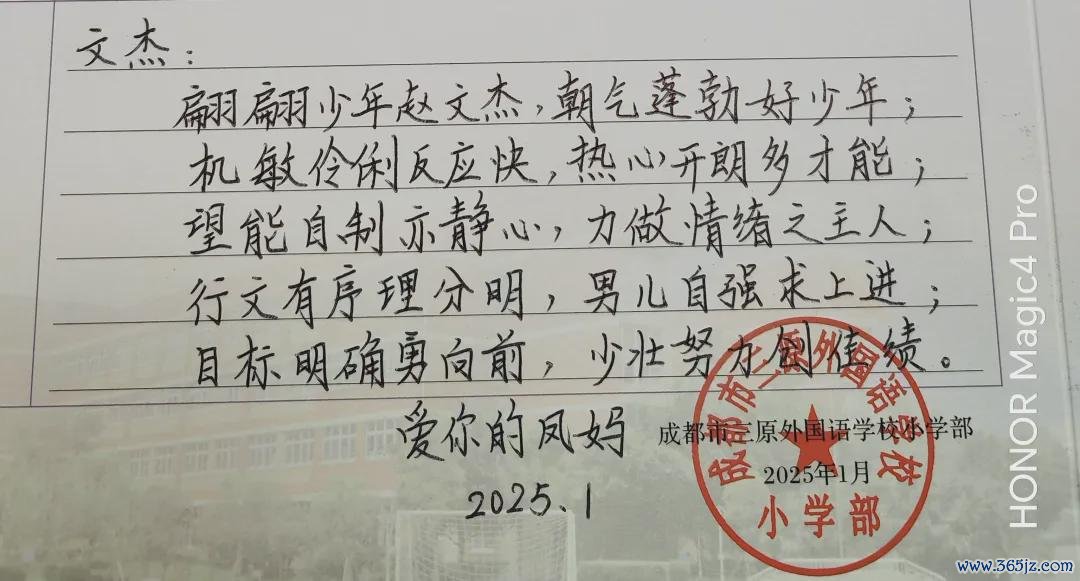 文杰：
翩翩少年赵文杰，朝气蓬勃好少年；
机敏伶俐反应快，热心开朗多才能；
望能自制亦静心，力做情绪之主人；
行文有序理分明，男儿自强求上进；
目标明确勇向前，少壮努力创佳绩。
爱你的凤妈
2025.1
成都市三原外国语学校小学部
2025年1月
成都市三原外国语学校
小学部
HONOR Magic4 Pro
www.365jz.com